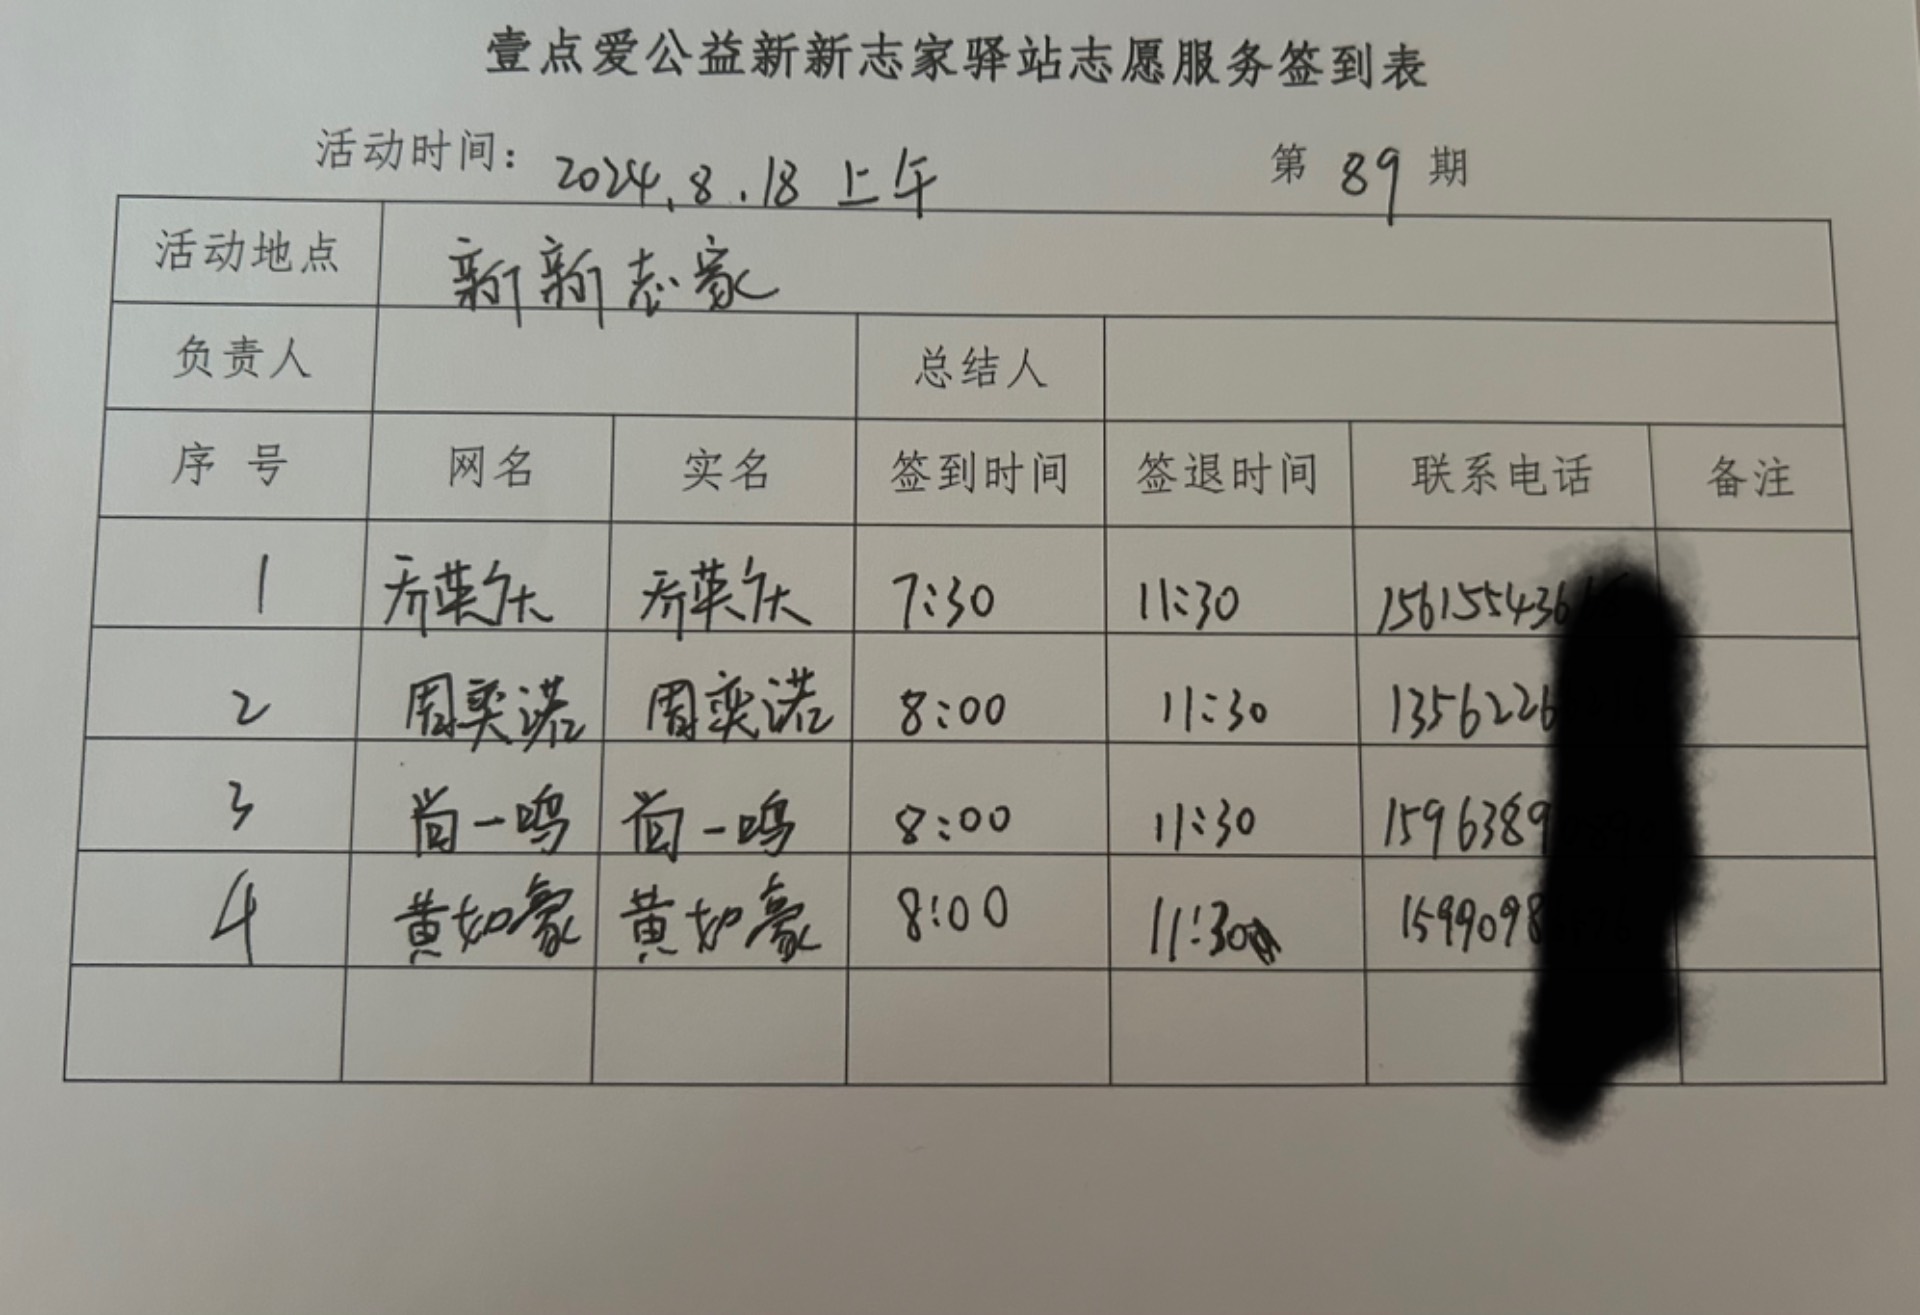 壹点爱公益新新志家驿站志愿服务签到表
活动时间: 2024.8.18 上午 第 89 期
活动地点 新新志家
负责人 总结人
序 号 网名 实名 签到时间 签退时间 联系电话 备注
1 乔英 乔英 7:30 11:30 156155436
2 周奕诺 周奕诺 8:00 11:30 1356226
3 尚一鸣 尚一鸣 8:00 11:30 1596389
4 黄如豪 黄如豪 8:00 11:30 1599098